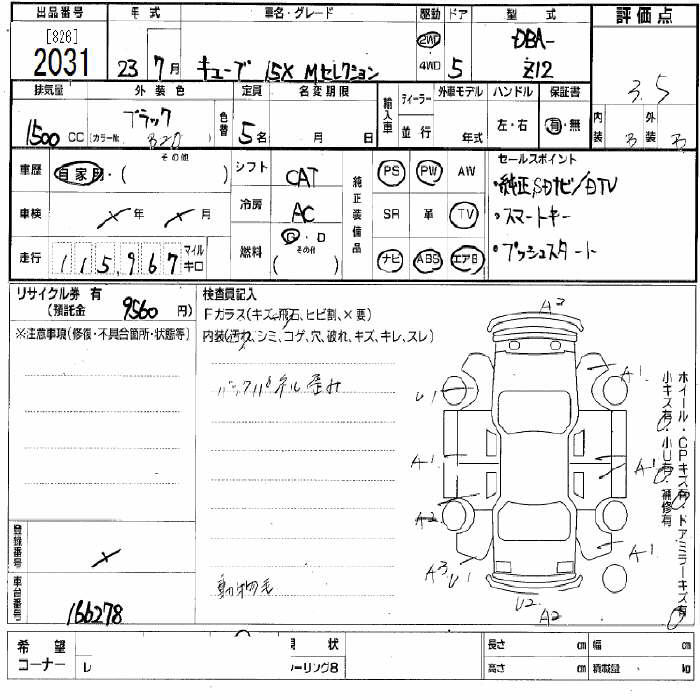 出品番号 年式 車名・グレード 駆動 ドア 型式 評価点
[826]
2031 23 7月 キューブ 15X Mセレクション 2WD 4WD 5 DBA- Z12 3.5
排気量 外装色 定員 名変期限 輸入車 ディーラー 外車モデル ハンドル 保証書
1500 CC ブラック (カラーNo. 色替 5名 月 日 並行 年式 左・右 有・無 内装 3 外装 3
車歴 自家用・( その他 ) シフト CAT 純正装備品 PS PW AW セールスポイント
・純正SDナビ/DTV
車検 × 年 × 月 冷房 AC SR 革 TV ・スマートキー
走行 115,967 マイル キロ 燃料 G・D (その他) ナビ ABS エアB ・プッシュスタート
リサイクル券 有 (預託金 9560 円) 検査員記入
Fガラス(キズ・飛石、ヒビ割、×要)
※注意事項(修復・不具合箇所・状態等) 内装(汚れ、シミ、コゲ、穴、破れ、キズ、キレ、スレ)
バックパネル歪み
A2
A1
U1
A1
A1
A2
A1
A3
U1
U2
A2
ホイール・CPキズ有・ドアミラーキズ有
小キズ有・小U有・補修有
登録番号 ×
動物毛
車台番号 166278
希望コーナー レ 現状 ーリング8 長さ cm 幅 cm
高さ cm 積載量 kg